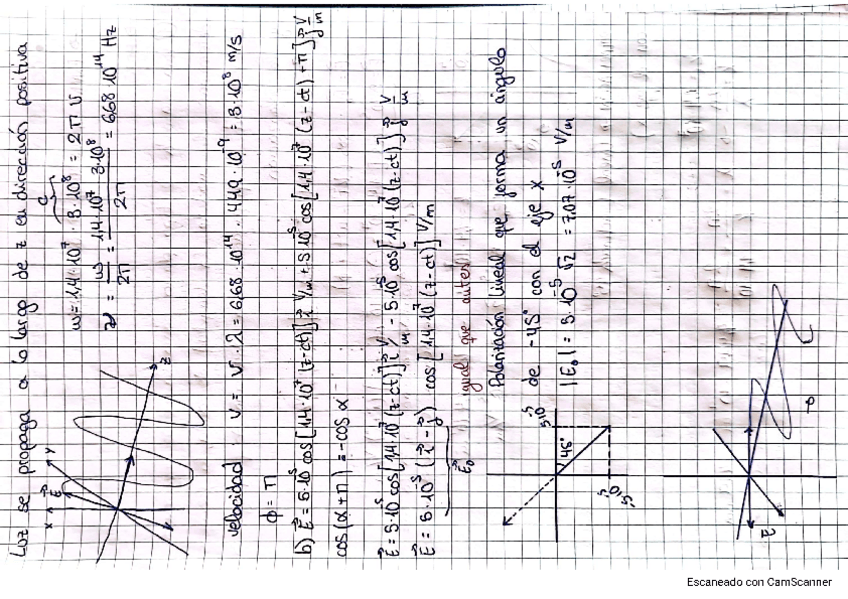 Luz se propaga a lo largo de z en dirección positiva
x
E⃗
y
z
c
ω = 1,4·10⁷ · 3·10⁸ = 2πν
ν = ω/2π = 1,4·10⁷ · 3·10⁸/2π = 6,68·10¹⁴ Hz
velocidad : v = ν·λ = 6,68·10¹⁴ · 449·10⁻⁹ = 3·10⁸ m/s
ϕ = π
b) E⃗ = 5·10⁻⁵ cos[1,4·10⁷ (z-ct)] i⃗ V/m + 5·10⁻⁵ cos[1,4·10⁷ (z-ct) + π] j⃗ V/m
cos(α+π) = -cos α
E⃗ = 5·10⁻⁵ cos[1,4·10⁷ (z-ct)] i⃗ V/m - 5·10⁻⁵ cos[1,4·10⁷ (z-ct)] j⃗ V/m
E⃗ = 5·10⁻⁵ (i⃗ - j⃗) cos[1,4·10⁷ (z-ct)] V/m
E⃗₀
igual que antes
Polarización lineal que forma un ángulo
de -45° con el eje x
|E₀| = 5·10⁻⁵ √2 = 7,07·10⁻⁵ V/m
45°
5·10⁻⁵
5·10⁻⁵
Escaneado con CamScanner